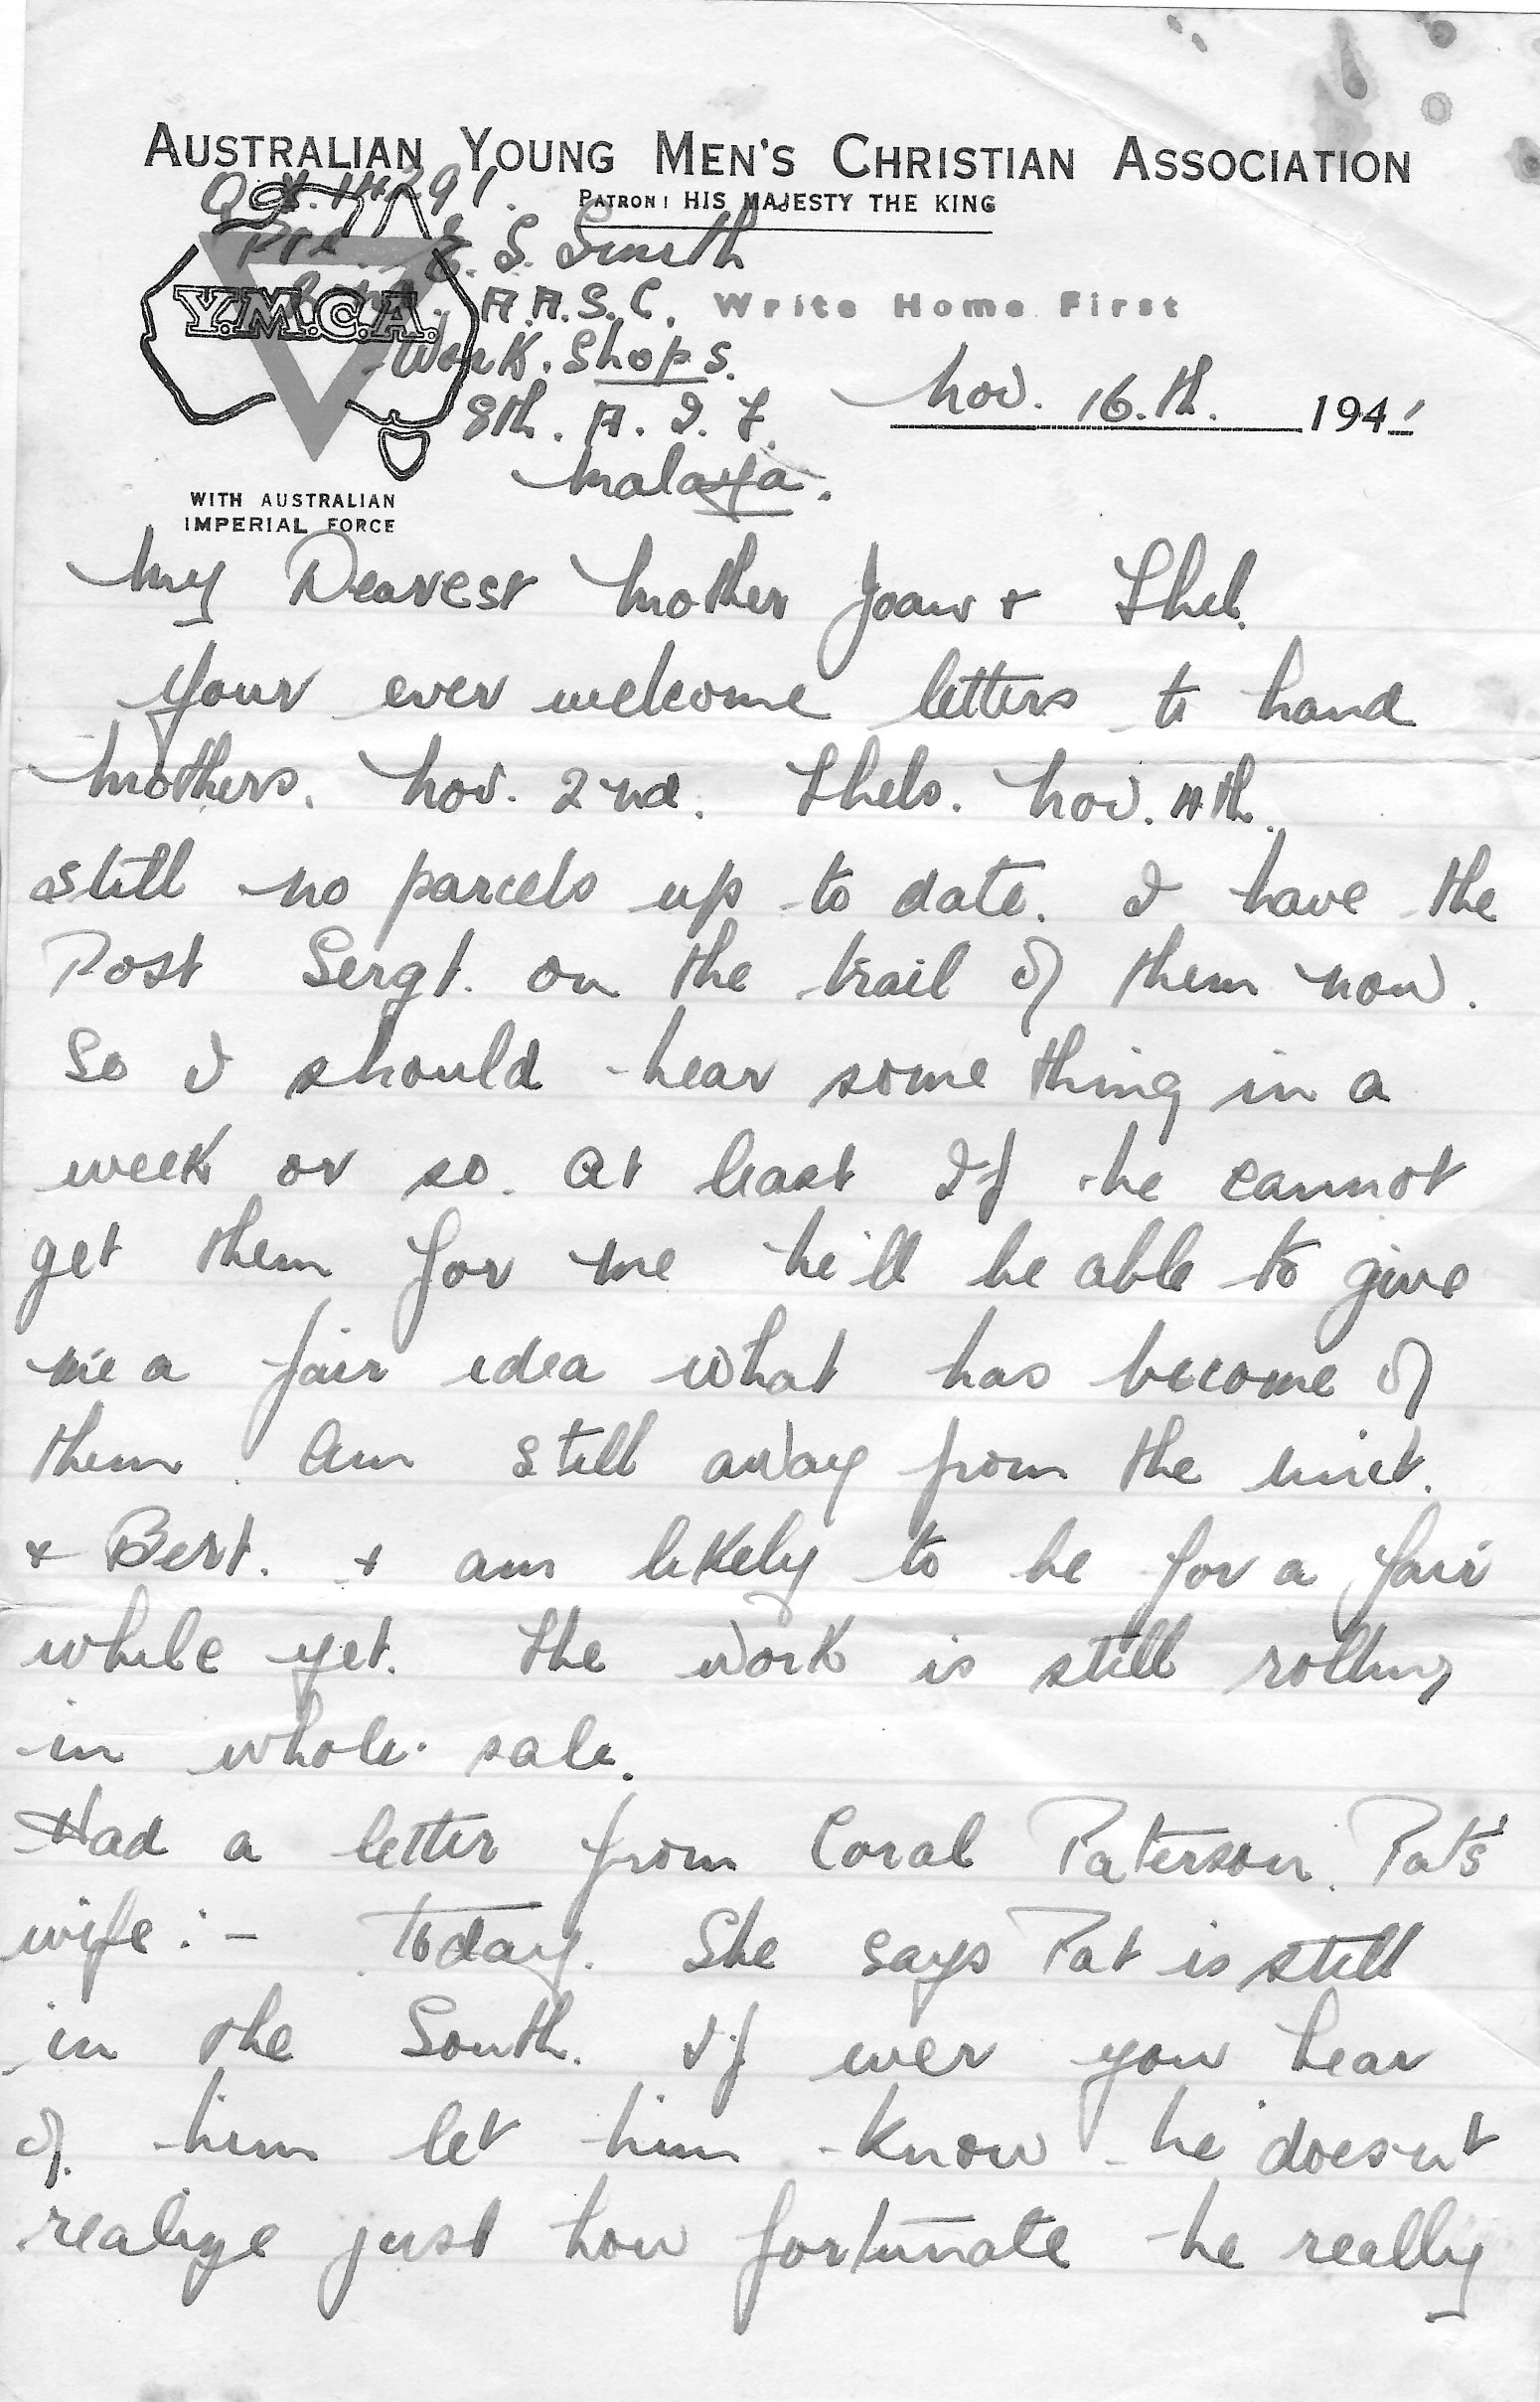 AUSTRALIAN YOUNG MEN'S CHRISTIAN ASSOCIATION
PATRON: HIS MAJESTY THE KING
Y.M.C.A.
WITH AUSTRALIAN
IMPERIAL FORCE
Write Home First
Pte. E. S. Smith
A.A.S.C.
Work. Shops.
8th. A. I. F.
Malaya.
Nov. 16.th. 1941
My Dearest Mother Joan + Thel.
Your ever welcome letters to hand
Mothers. Nov. 2nd. Thels. Nov. 4th.
still no parcels up to date. I have the
Post Sergt. on the trail of them now.
So I should hear some thing in a
week or so. At least If he cannot
get them for me he'll be able to give
me a fair idea what has become of
them. Am still away from the unit.
+ Bert. + am likely to be for a fair
while yet. The work is still rolling
in whole. sale.
Had a letter from Coral Paterson. Pat's
wife:- today. She says Pat is still
in the South. If ever you hear
of. him let him know he doesn't
realize just how fortunate he really